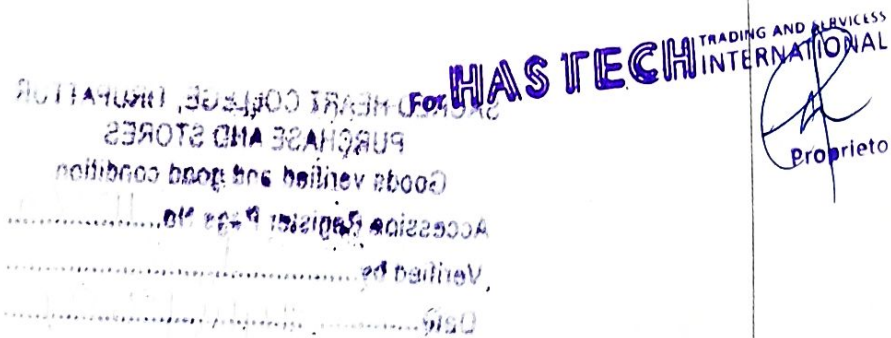 TRADING AND SERVICESS
For HAS TECH INTERNATIONAL
Proprieto
SACRED HEART COLLEGE, TIRUPATTUR
PURCHASE AND STORES
Goods verified and good condition
Accession Register Page No.
Verified by
Date